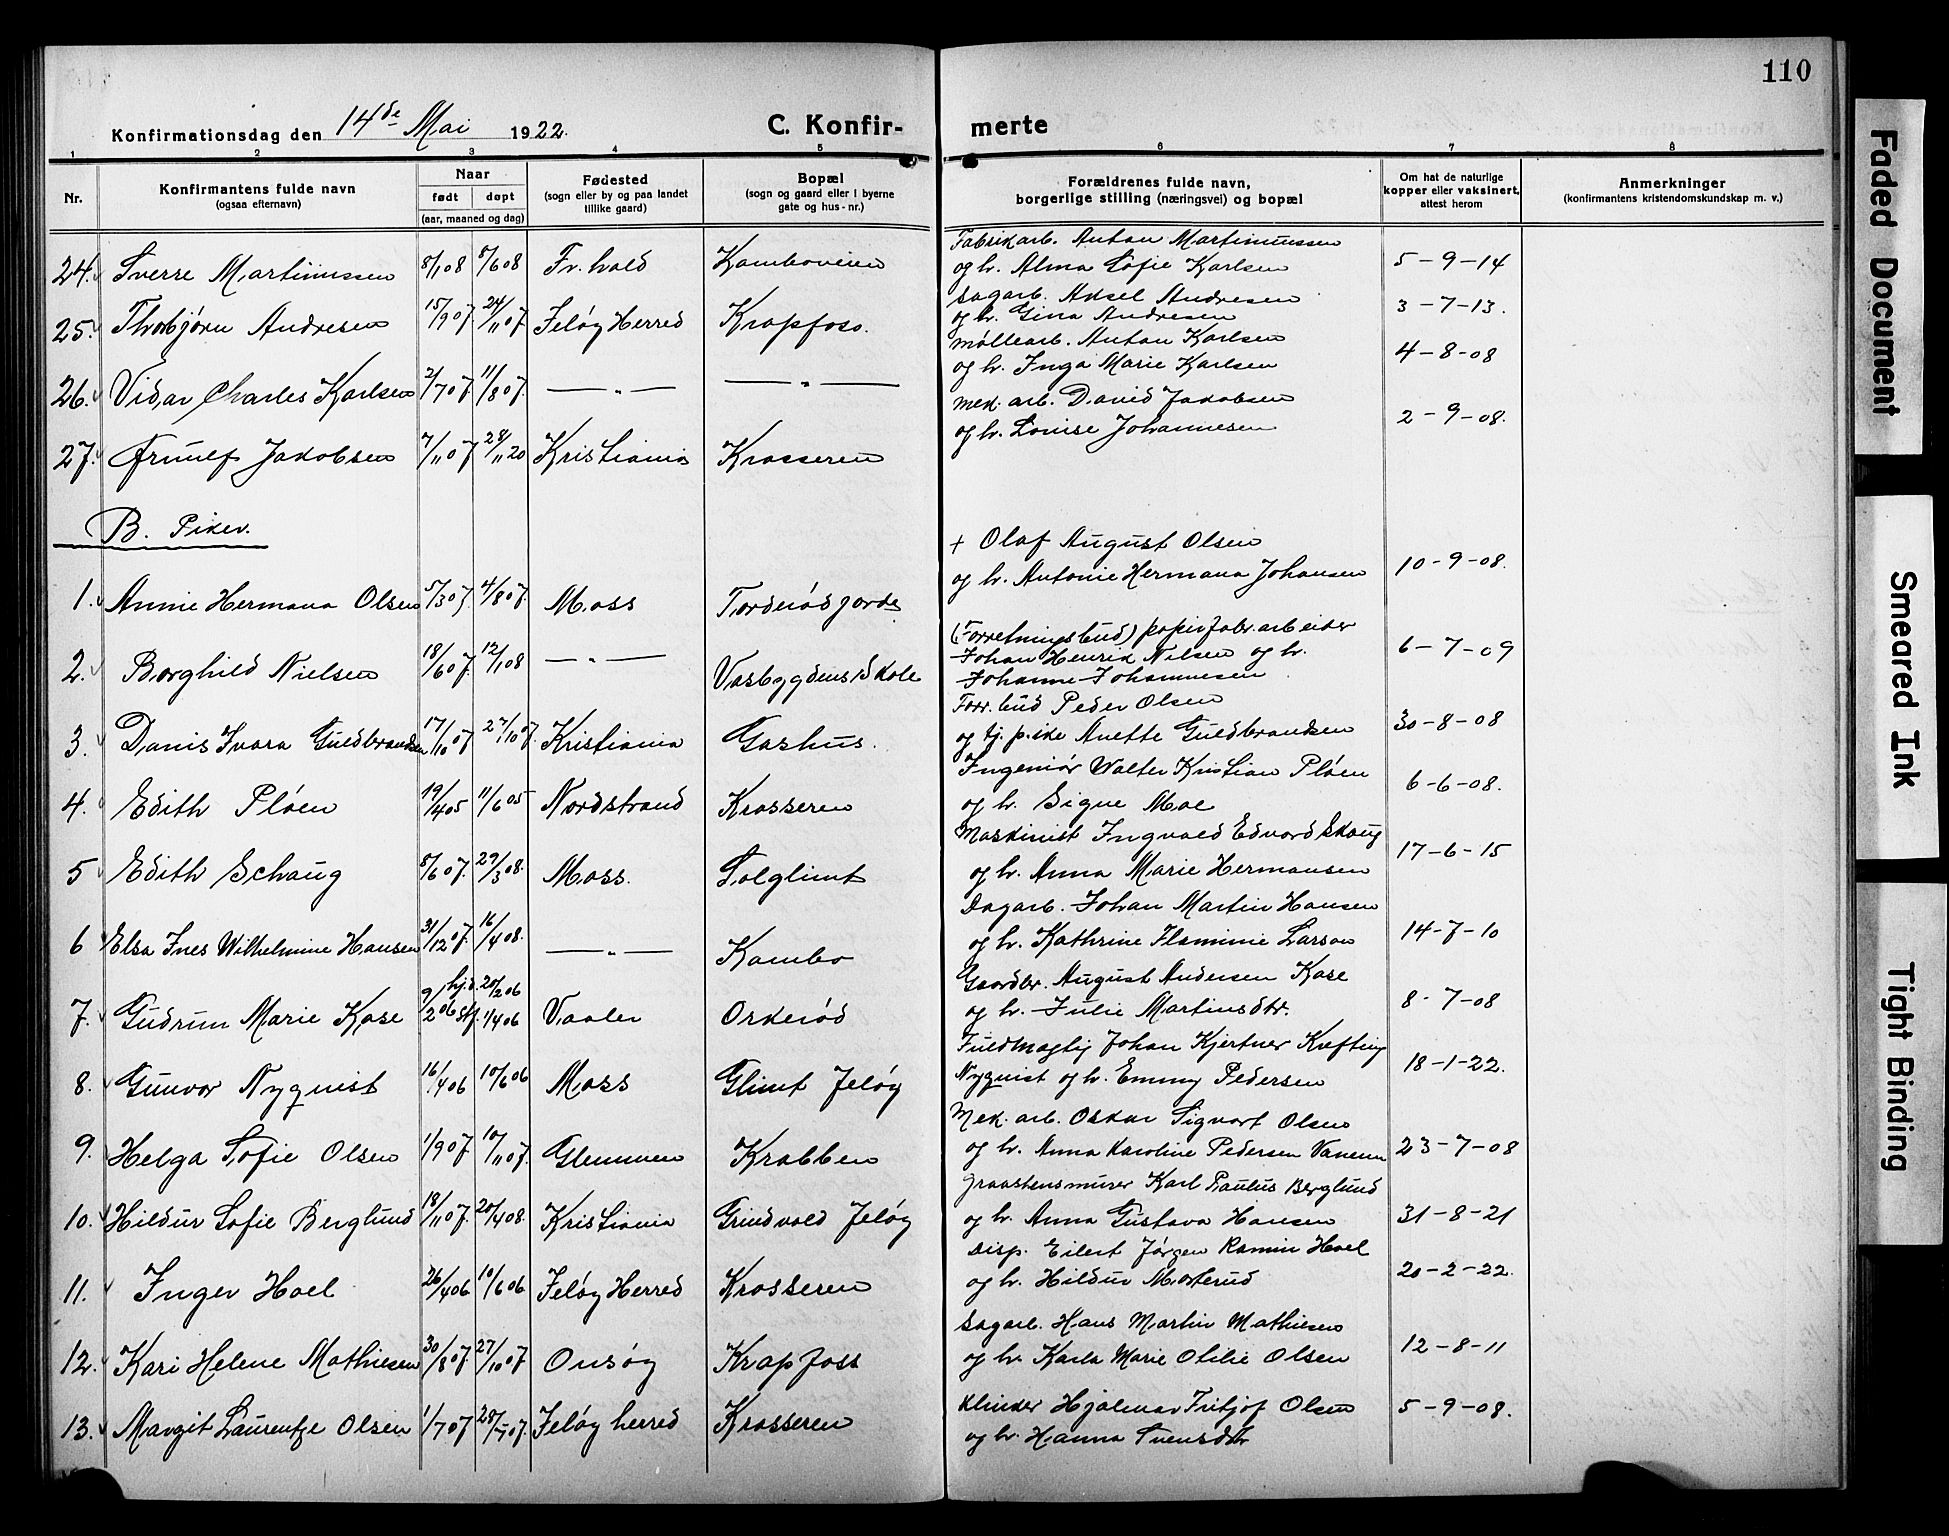 110
Konfirmationsdag den 14de Mai 1922.
C. Konfir-merte
1 2 3 4 5 6 7 8
Nr.
Konfirmantens fulde navn
(ogsaa efternavn)
Naar
født døpt
(aar, maaned og dag)
Fødested
(sogn eller by og paa landet
tillike gaard)
Bopæl
(sogn og gaard eller i byerne
gate og hus-nr.)
Forældrenes fulde navn,
borgerlige stilling (næringsvei) og bopæl
Om hat de naturlige
kopper eller vaksinert,
attest herom
Anmerkninger
(konfirmantens kristendomskundskap m. v.)
24. Sverre Martinussen 8/1 08 8/6 08 Fr. hald Kamboveien
Fabrikarb. Anton Martinussen
og h. Alma Sofie Karlsen 5-9-14
25. Thorbjørn Andresen 15/9 07 24/11 07. Jeløy Herred Krapfoss.
Sagarb. Aksel Andresen
og h. Gina Andresen 3-7-13.
26. Vidar Charles Karlsen 2/7 07. 11/8 07. — „ — — „ —
Møllearb. Anton Karlsen
og h. Inga Marie Karlsen 4-8-08
27. Arnulf Jakobsen 7/11 07 28/11 20 Kristiania Krosseren
Mek. arb. David Jakobsen
og h. Louise Johannesen 2-9-08.
B. Piker.
1. Annie Hermana Olsen 5/3 07. 4/8 07. Moss Tordnødjorde
+ Olaf August Olsen
og h. Antonie Hermana Johansen 10-9-08.
2. Borghild Nielsen 18/6 07. 12/1 08 — „ — Vasbygdens Skole
(Forretningsbud) papirfabr. arbeider
Johan Henrik Nilsen og h.
Johanne Johannesen 6-7-09
3. Danis Ivara Guldbrandsen 17/10 07 27/10 07. Kristiania Gashus.
Forr. bud Peder Olsen
og tj. pike Anette Guldbrandsen 30-8-08
4. Edith Pløen 19/4 05 11/6 05 Nordstrand Krosseren
Ingeniør Walter Kristian Pløen
og h. Signe Moe 6-6-08.
5 Edith Schaug 8/6 07. 29/3 08. Moss. Solglimt
Maskinist Ingvald Edvard Skaug
og h. Anna Marie Hermansen 17-6-15
6 Elsa Ines Wilhelmine Hansen 31/12 07. 16/4 08. — „ — Kambo
Dagarb. Johan Martin Hansen
og h. Kathrine Flaminie Larson 14-7-10
7. Gudrun Marie Kase 9/2 06 hj.d. 20/2 06 stf. 1/4 06 Vaaler Orkerød
Gaardbr. August Andersen Kase
og h. Julie Martinsdtr. 8-7-08
8. Gunvor Nyquist 16/4 06 10/6 06 Moss Glimt Jeløy
Fuldmægtig Johan Kjertner Krefting
Nyquist og h. Emmy Pedersen 18-1-22.
9. Helga Sofie Olsen 1/9 07. 10/11 07. Glemmen Krabben
Mek. arb. Oskar Sigvart Olsen
og h. Anna Karoline Pedersen Vanem 23-7-08
10. Hildur Sofie Berglund 18/11 07. 20/4 08. Kristiania Grindvold Jeløy
Graastensmurer Karl Paulus Berglund
og h. Anna Gustava Hansen 31-8-21
11. Inger Hoel 26/4 06 10/6 06 Jeløy Herred Krosseren
Disp. Eilert Jørgen Ramin Hoel
og h. Hildur Morterud 20-2-22.
12. Kari Helene Mathiesen 30/8 07. 27/10 07. Onsøy Krapfoss
Sagarb. Hans Martin Mathiesen
og h. Karla Marie Otilie Olsen 12-8-11
13. Margit Laurentze Olsen 1/7 07 28/7 07. Jeløy herred Krosseren
Klinker Hjalmar Fritjof Olsen
og h. Hanna Svensdtr 5-9-08.
Faded Document
Smeared Ink
Tight Binding